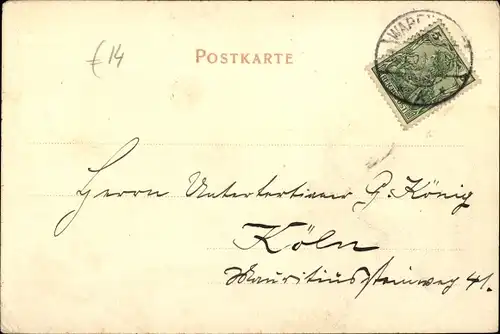 £14
POSTKARTE
Herrn Untertertianer G. König
Köln
Mauritiussteinweg 41.